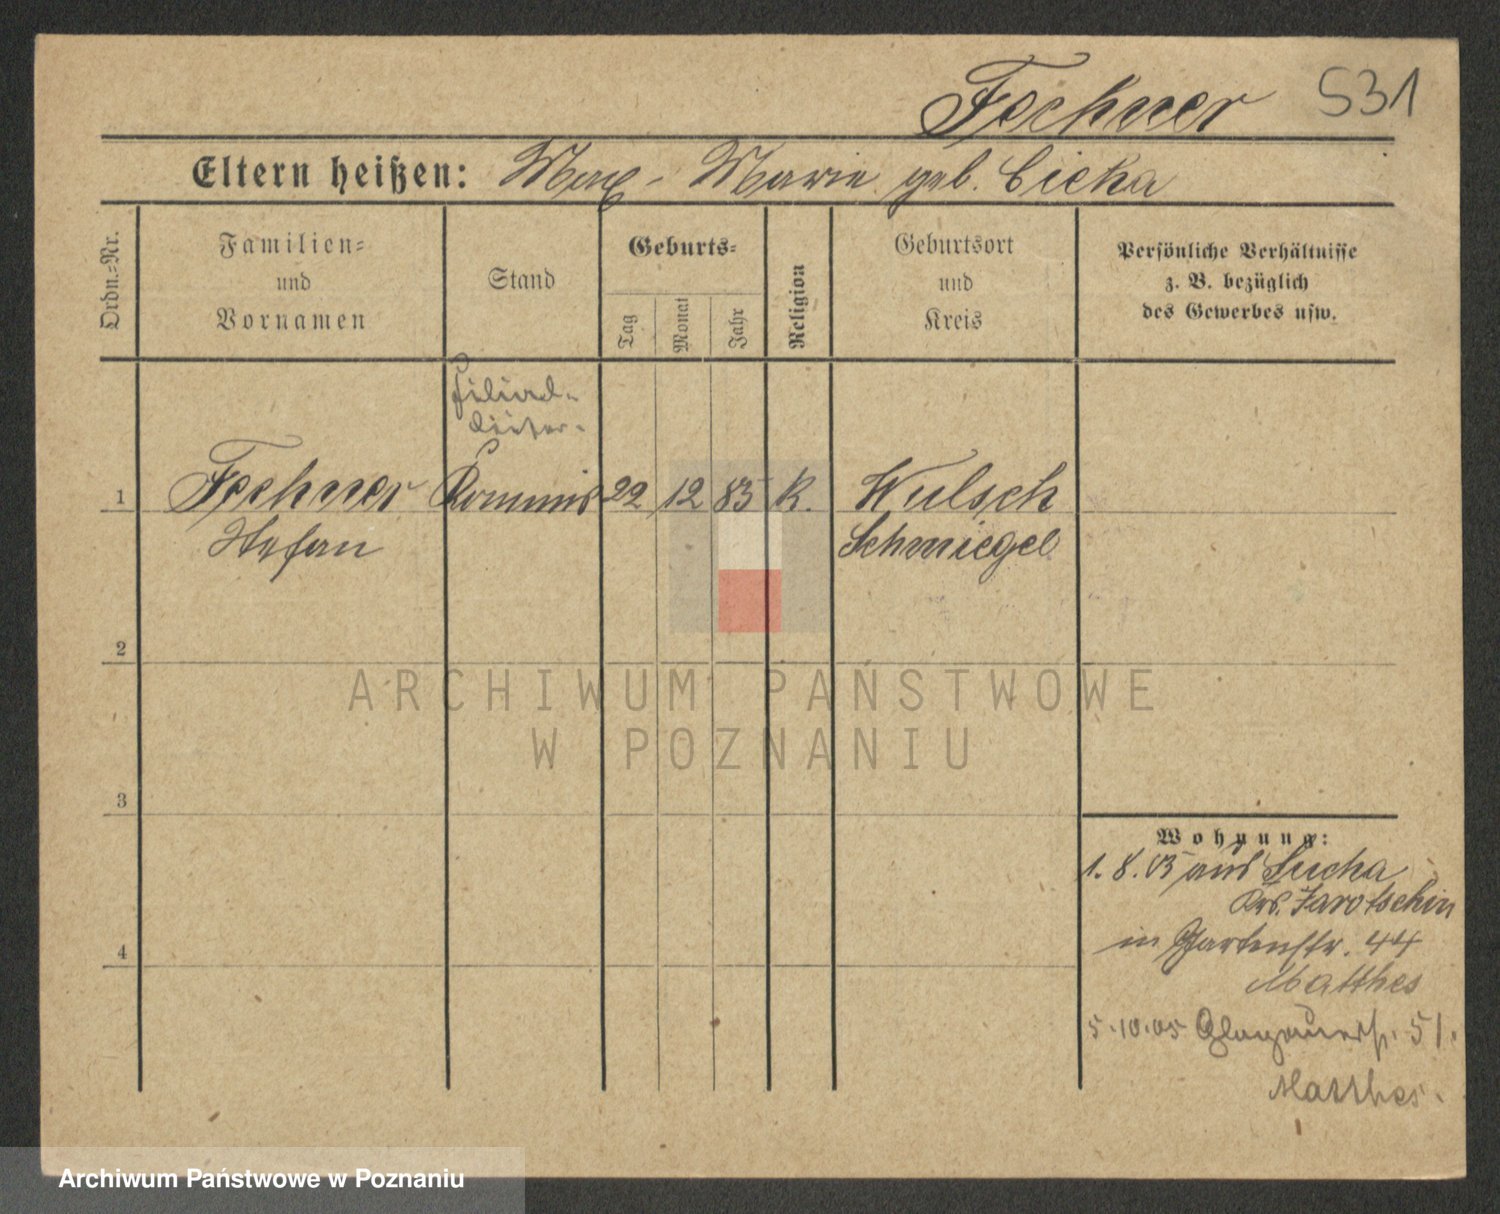 Fechner 531
Eltern heißen: Max - Marie geb. Cicka
Ordn.=Nr.
Familien=
und
Vornamen
Stand
Geburts=
Tag
Monat
Jahr
Religion
Geburtsort
und
Kreis
Persönliche Verhältnisse
z. B. bezüglich
des Gewerbes usw.
Filial-
1 Fechner Kommis 22 12 83 K. Wulsch
Stefan Schmiegel
2
3
4
Wohnung:
1. 8. 05 aus Sucha
Krs. Jarotschin
in Gartenstr. 44
Matthes
5.10.05 Glogauerstr. 51.
Matthes.
ARCHIWUM PAŃSTWOWE
W POZNANIU
Archiwum Państwowe w Poznaniu